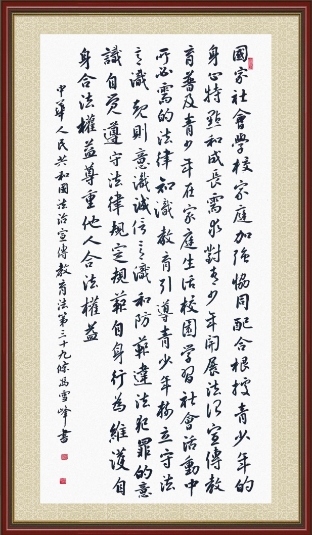 國家社會學校家庭加強協同配合根據青少年的
身心特點和成長需求對青少年開展法治宣傳教
育普及青少年在家庭生活校園學習社會活動中
所必需的法律知識教育引導青少年樹立守法
意識規則意識誠信意識和防範違法犯罪的意
識自覺遵守法律規定規範自身行為維護自
身合法權益尊重他人合法權益
中華人民共和國法治宣傳教育法第三十九條馮雪峰書